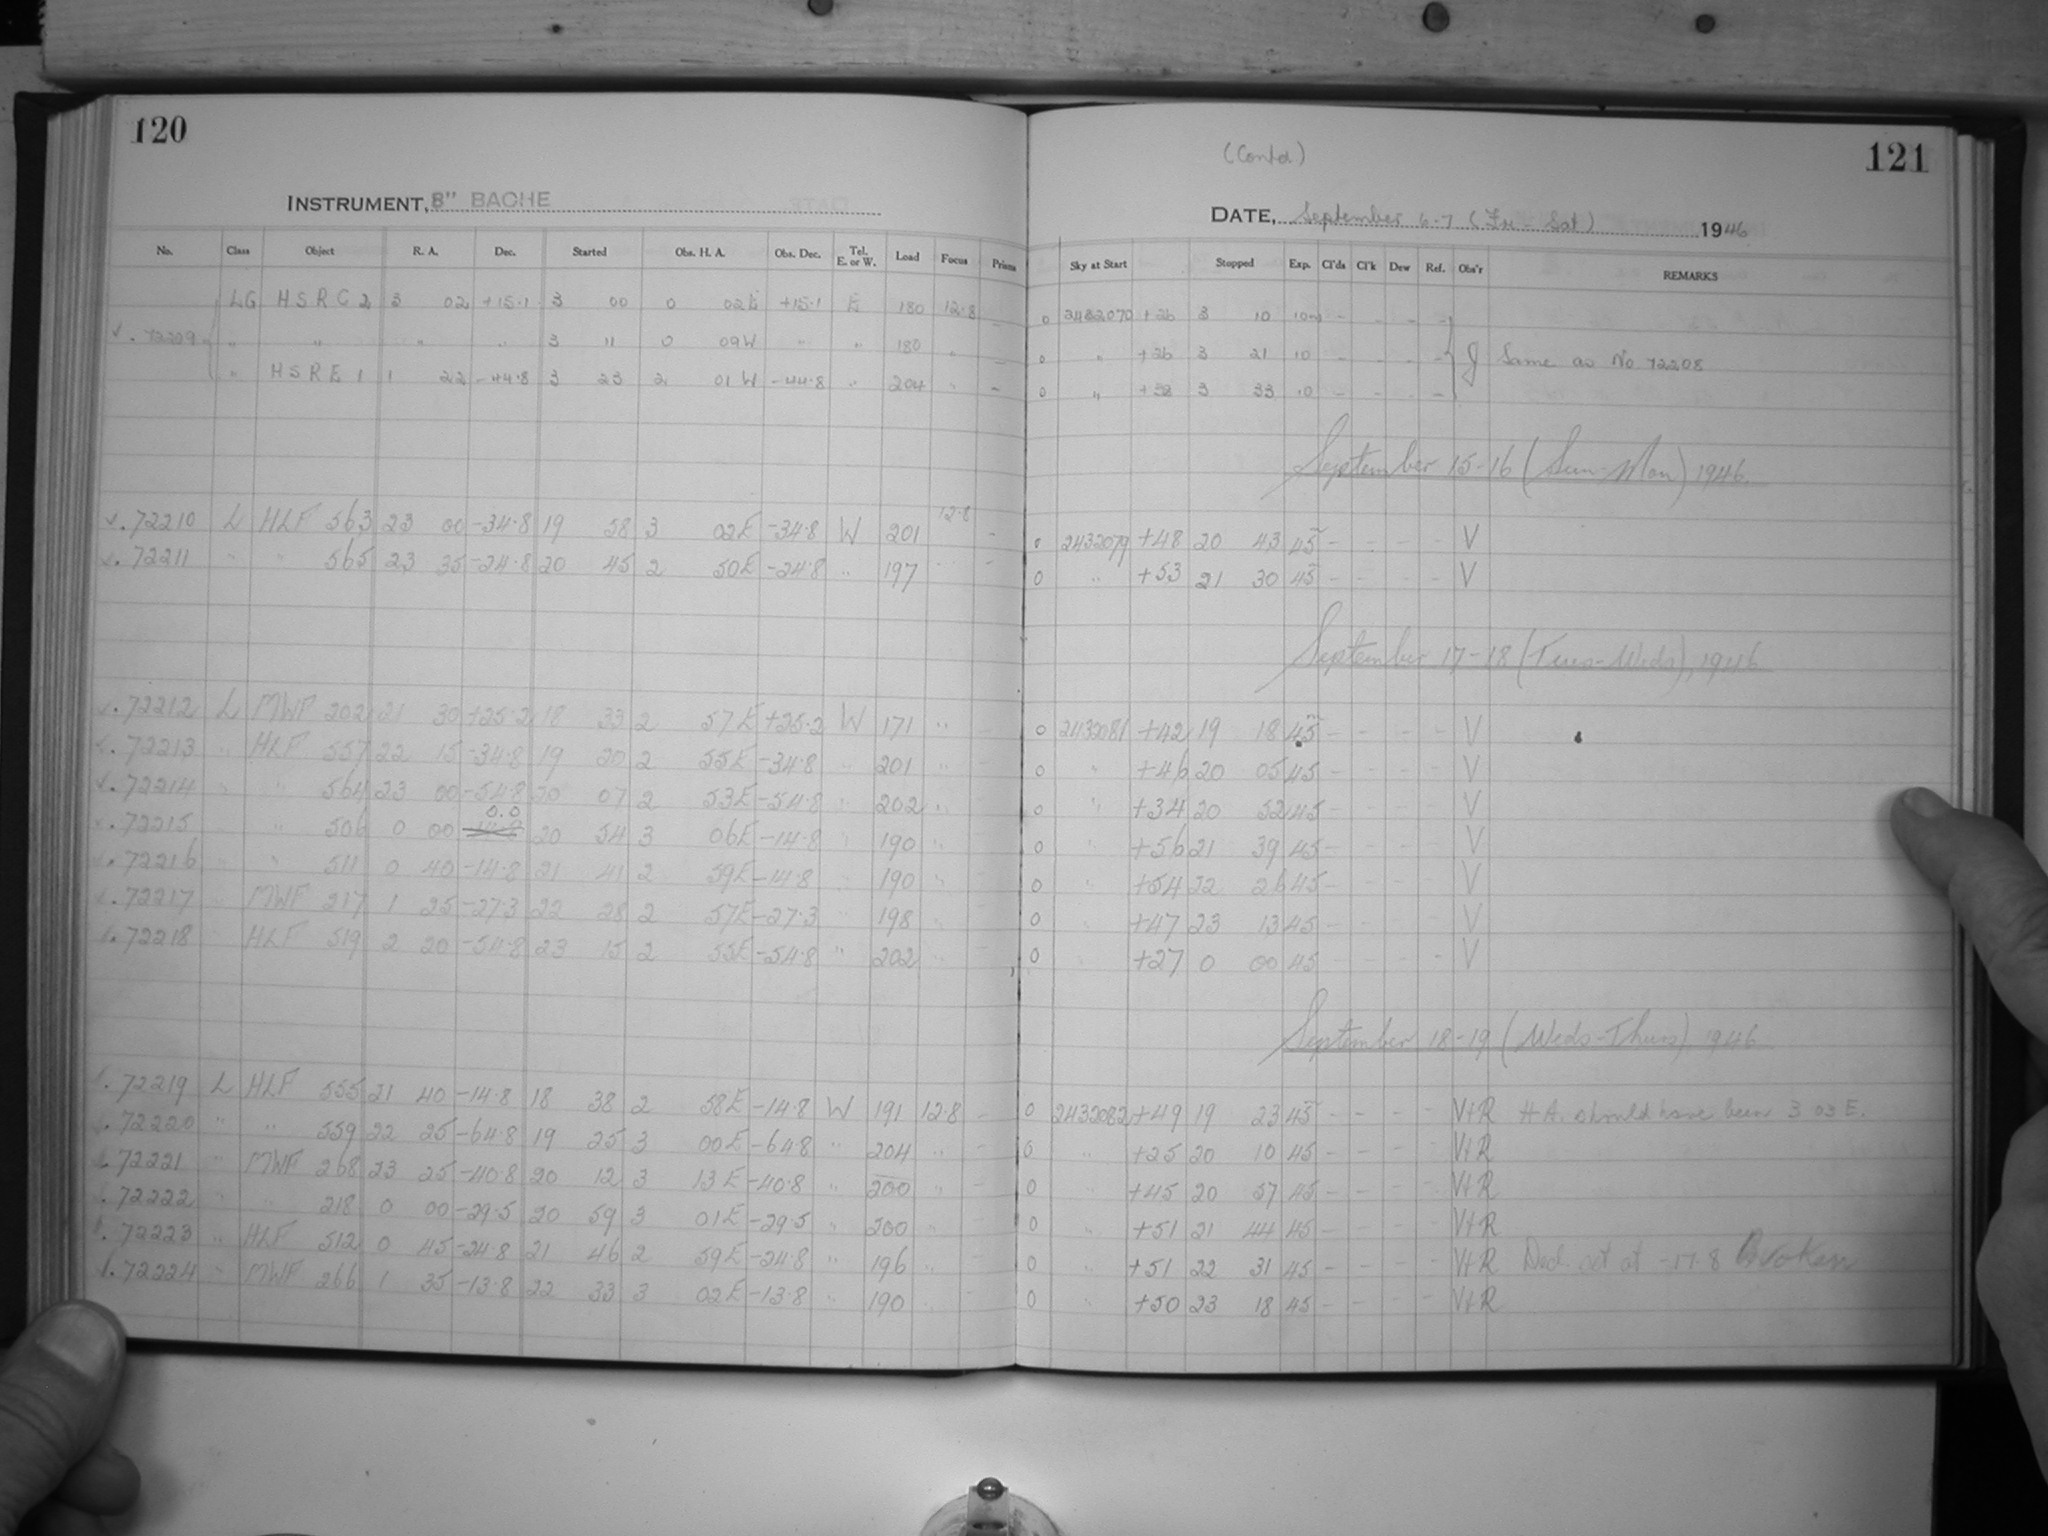 120
INSTRUMENT, 8" BACHE
No. Class Object R. A. Dec. Started Obs. H. A. Obs. Dec. Tel. E. or W. Load Focus Prisms
LG HSRC 2 3 02 +15.1 3 00 0 02E +15.1 E 180 12.8 -
✓. 72209 " " " " 3 11 0 09W " " 180 " -
" HSRE 1 1 22 -44.8 3 23 2 01W -44.8 " 204 " -
✓. 72210 L HLF 563 23 00 -34.8 19 58 3 02E -34.8 W 201 12.8 -
✓. 72211 " " 565 23 35 -24.8 20 45 2 50E -24.8 " 197 " -
✓. 72212 L MWF 202 21 30 +25.2 18 33 2 57E +25.2 W 171 " -
✓. 72213 " HLF 557 22 15 -34.8 19 20 2 55E -34.8 " 201 " -
✓. 72214 " " 564 23 00 -54.8 20 07 2 53E -54.8 " 202 " -
0.0
✓. 72215 " " 506 0 00 -14.8 20 54 3 06E -14.8 " 190 " -
✓. 72216 " " 511 0 40 -14.8 21 41 2 59E -14.8 " 190 " -
✓. 72217 " MWF 217 1 25 -27.3 22 28 2 57E -27.3 " 198 " -
✓. 72218 " HLF 519 2 20 -54.8 23 15 2 55E -54.8 " 202 " -
✓. 72219 L HLF 555 21 40 -14.8 18 38 2 58E -14.8 W 191 12.8 -
✓. 72220 " " 559 22 25 -64.8 19 25 3 00E -64.8 " 204 " -
✓. 72221 " MWF 268 23 25 -40.8 20 12 3 13E -40.8 " 200 " -
✓. 72222 " " 218 0 00 -29.5 20 59 3 01E -29.5 " 200 " -
✓. 72223 " HLF 512 0 45 -24.8 21 46 2 59E -24.8 " 196 " -
✓. 72224 " MWF 266 1 35 -13.8 22 33 3 02E -13.8 " 190 " -
(Contd)
121
DATE, September 6-7 (Fri - Sat) 1946
Sky at Start Stopped Exp. Cl'ds Cl'k Dew Ref. Obs'r REMARKS
0 2432070 +26 3 10 10m - - - -
0 " +26 3 21 10 - - - - J Same as No 72208
0 " +38 3 33 10 - - - -
September 15-16 (Sun-Mon) 1946.
0 2432079 +48 20 43 45 - - - - V
0 " +53 21 30 45 - - - - V
September 17-18 (Tues-Weds), 1946
0 2432081 +42 19 18 45 - - - - V
0 " +46 20 05 45 - - - - V
0 " +34 20 52 45 - - - - V
0 " +56 21 39 45 - - - - V
0 " +54 22 26 45 - - - - V
0 " +47 23 13 45 - - - - V
0 " +27 0 00 45 - - - - V
September 18-19 (Weds-Thurs), 1946
0 2432082 +49 19 23 45 - - - - V+R H.A. should have been 3 03 E.
0 " +25 20 10 45 - - - - V+R
0 " +45 20 57 45 - - - - V+R
0 " +51 21 44 45 - - - - V+R
0 " +51 22 31 45 - - - - V+R Decl. set at -17.8 Broken
0 " +50 23 18 45 - - - - V+R